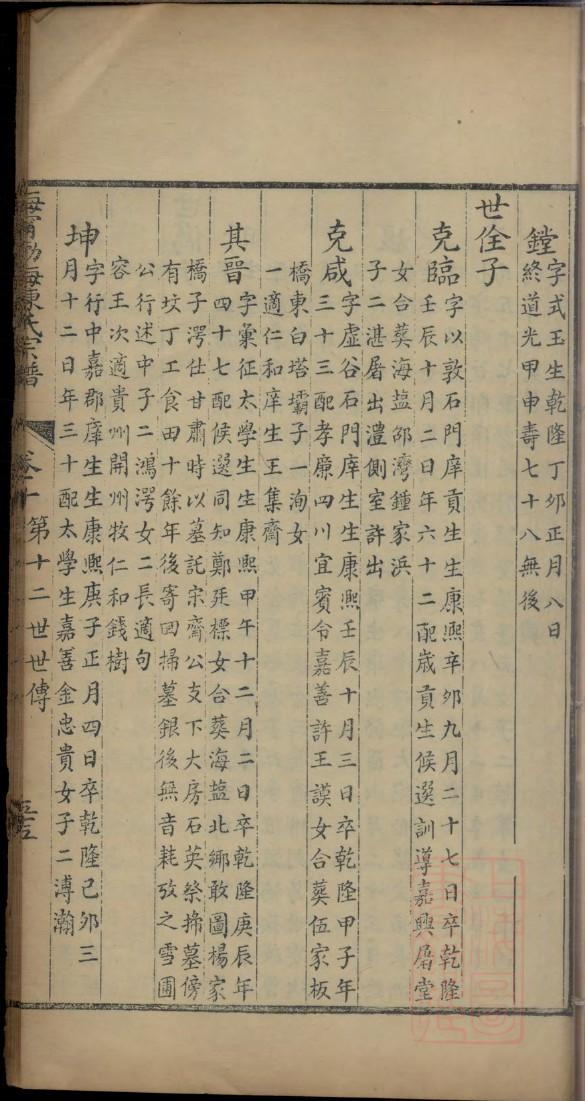 鏜字式玉生乾隆丁夘正月八日
終道光甲申壽七十八無後
世佺子
克臨字以敦石門庠貢生生康熙辛夘九月二十七日卒乾隆
壬辰十月二日年六十二配歲貢生候選訓導嘉興屠堂
女合葬海鹽邵灣鍾家浜
子二湛屠出澧側室許出
克咸字虛谷石門庠生生康熙壬辰十月三日卒乾隆甲子年
三十三配孝廉四川宜賓令嘉善許王謨女合葬伍家板
橋東白塔壩子一洵女
一適仁和庠生王集齋
其晉字彙征太學生生康熙甲午十二月二日卒乾隆庚辰年
四十七配候選同知鄭廷標女合葬海鹽北鄉敢圖楊家
橋子澪仕甘肅時以墓託宗齋公支下大房石英祭掃墓傍
有坟丁工食田十餘年後寄回掃墓銀後無音耗攷之雪圃
公行述中子二鴻澪女二長適句
容王次適貴州開州牧仁和錢樹
坤字行中嘉郡庠生生康熙庚子正月四日卒乾隆己夘三
月十二日年三十配太學生嘉善金忠貴女子二溥瀚
海寧渤海陳氏宗譜 卷十 第十二世世傳 五五